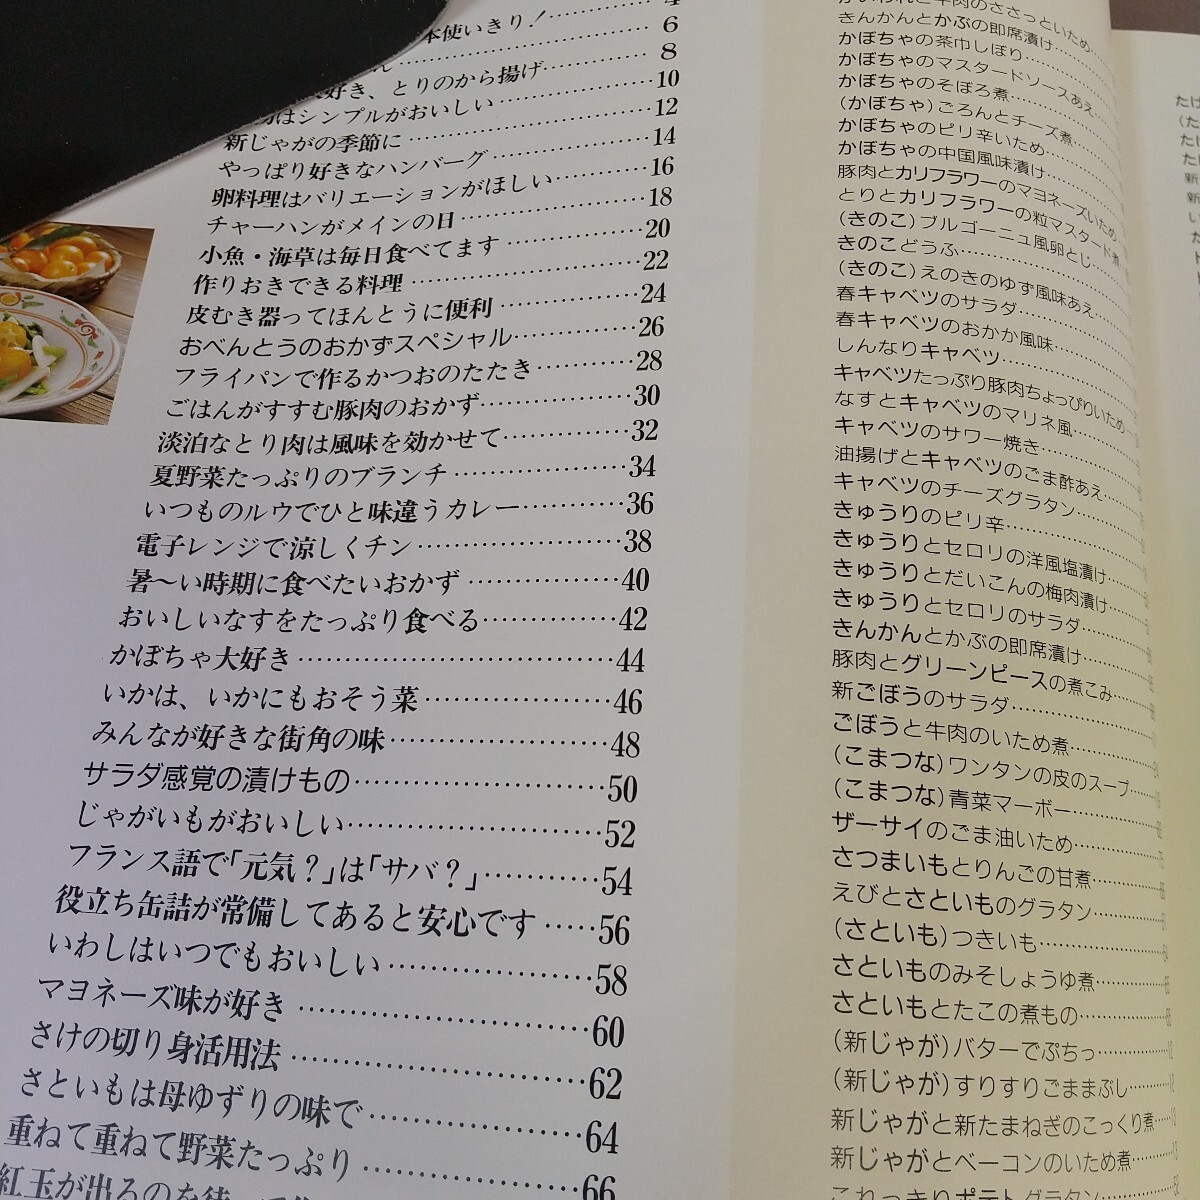 本使いきり！
6
ん
8
好き、とりのから揚げ…10
はシンプルがおいしい…12
新じゃがの季節に…14
やっぱり好きなハンバーグ…16
卵料理はバリエーションがほしい…18
チャーハンがメインの日…20
小魚・海草は毎日食べてます…22
作りおきできる料理…24
皮むき器ってほんとうに便利…26
おべんとうのおかずスペシャル…28
フライパンで作るかつおのたたき…30
ごはんがすすむ豚肉のおかず…32
淡泊なとり肉は風味を効かせて…34
夏野菜たっぷりのブランチ…36
いつものルウでひと味違うカレー…38
電子レンジで涼しくチン…40
暑〜い時期に食べたいおかず…42
おいしいなすをたっぷり食べる…44
かぼちゃ大好き…46
いかは、いかにもおそう菜…48
みんなが好きな街角の味…50
サラダ感覚の漬けもの…52
じゃがいもがおいしい…54
フランス語で「元気？」は「サバ？」…56
役立ち缶詰が常備してあると安心です…58
いわしはいつでもおいしい…60
マヨネーズ味が好き…62
さけの切り身活用法…64
さといもは母ゆずりの味で…66
重ねて重ねて野菜たっぷり
紅玉が出るのを待って
牛肉のささっといため
きんかんとかぶの即席漬け
かぼちゃの茶巾しぼり
かぼちゃのマスタードソースあえ
かぼちゃのそぼろ煮
(かぼちゃ)ごろんとチーズ煮
かぼちゃのピリ辛いため
かぼちゃの中国風味漬け
豚肉とカリフラワーのマヨネーズいため
とりとカリフラワーの粒マスタード煮
(きのこ)ブルゴーニュ風卵とじ
きのこどうふ
(きのこ)えのきのゆず風味あえ
春キャベツのサラダ
春キャベツのおかか風味
しんなりキャベツ
キャベツたっぷり豚肉ちょっぴりいため
なすとキャベツのマリネ風
キャベツのサワー焼き
油揚げとキャベツのごま酢あえ
キャベツのチーズグラタン
きゅうりのピリ辛
きゅうりとセロリの洋風塩漬け
きゅうりとだいこんの梅肉漬け
きゅうりとセロリのサラダ
きんかんとかぶの即席漬け
豚肉とグリーンピースの煮こみ
新ごぼうのサラダ
ごぼうと牛肉のいため煮
(こまつな)ワンタンの皮のスープ
(こまつな)青菜マーボー
ザーサイのごま油いため
さつまいもとりんごの甘煮
えびとさといものグラタン
(さといも)つきいも
さといものみそしょうゆ煮
さといもとたこの煮もの
(新じゃが)バターでぷちっ
(新じゃが)すりすりごままぶし
新じゃがと新たまねぎのこっくり煮
新じゃがとベーコンのいため煮
これっきりポテトグラタン